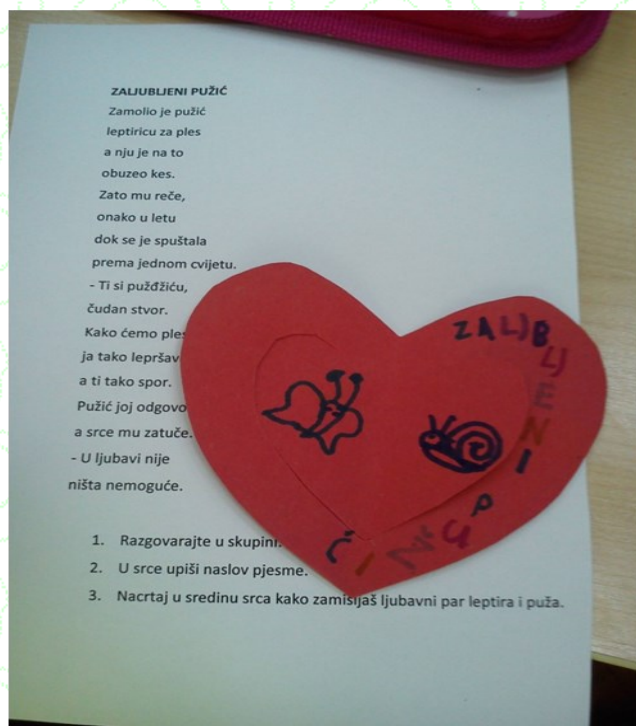 ZALJUBLJENI PUŽIĆ
Zamolio je pužić
leptiricu za ples
a nju je na to
obuzeo kes.
Zato mu reče,
onako u letu
dok se je spuštala
prema jednom cvijetu.
- Ti si puždžiću,
čudan stvor.
Kako ćemo
ja tako
a ti tako spor.
Pužić joj
a srce mu zatuče.
- U ljubavi nije
ništa nemoguće.
1. Razgovarajte u skupini.
2. U srce upiši naslov pjesme.
3. Nacrtaj u sredinu srca kako zamišljaš ljubavni par leptira i puža.
ZALJBLJENI
PUŽIĆ